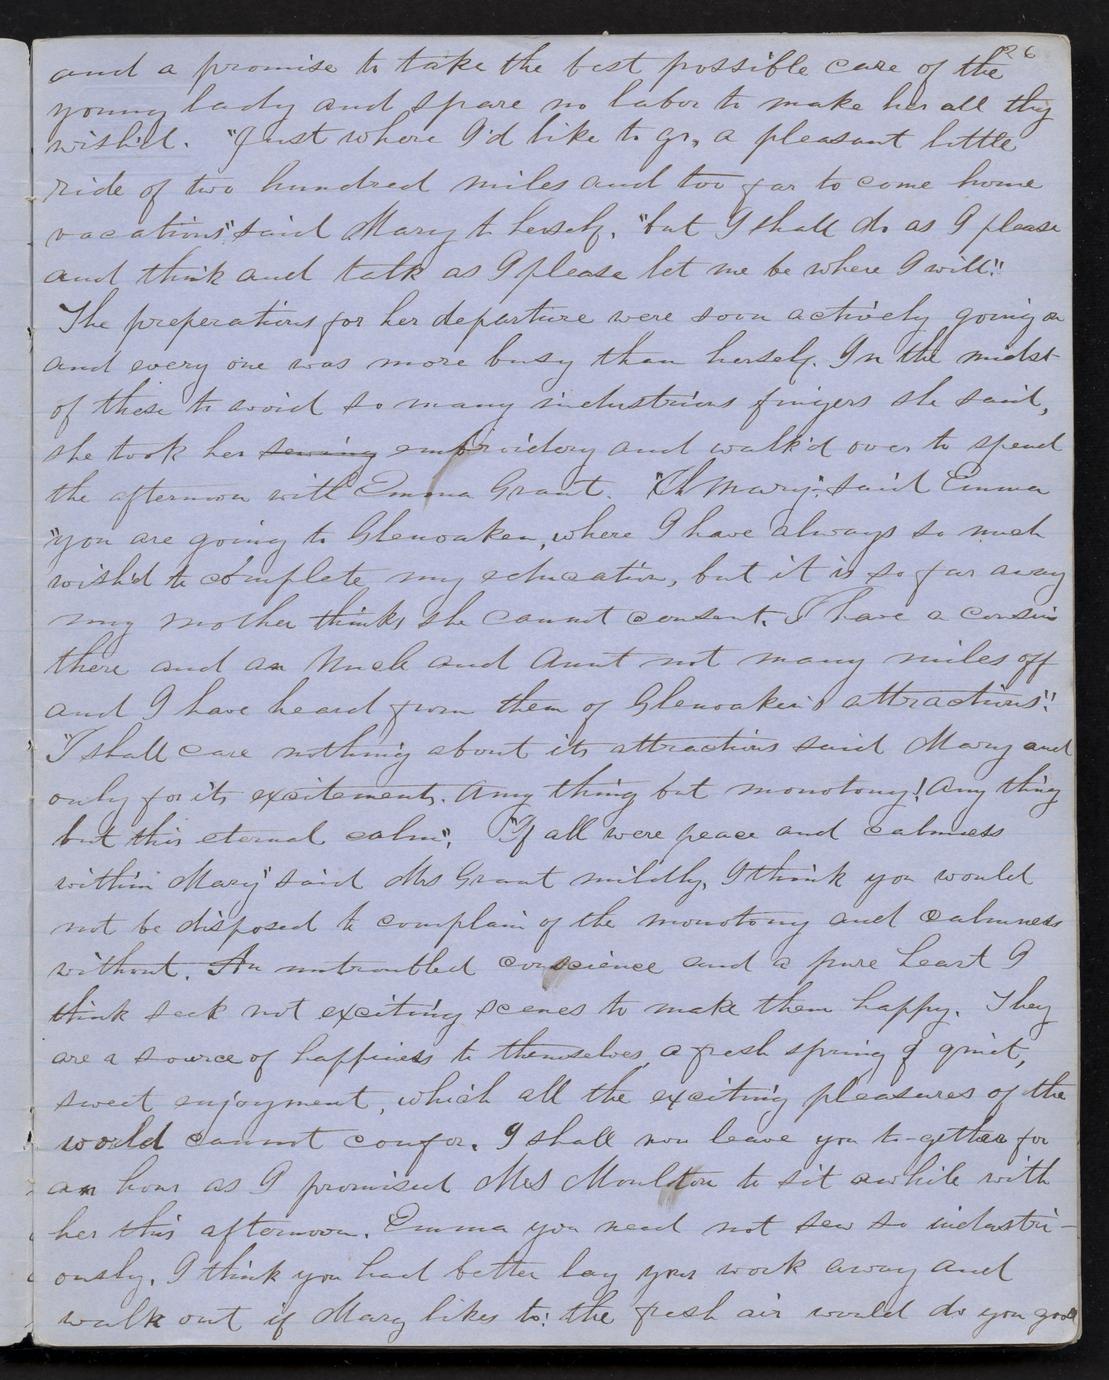 26
and a promise to take the best possible care of the
young lady and spare no labor to make her all they
wish'd. "Just where I'd like to go, a pleasant little
ride of two hundred miles and too far to come home
vacations" said Mary to herself, "but I shall do as I please
and think and talk as I please let me be where I will."
The preperations for her departure were soon actively going on
and every one was more busy than herself. In the midst
of these to avoid so many industrious fingers she said,
she took her sewing embroidery and walk'd over to spend
the afternoon with Emma Grant. "Oh Mary", said Emma
"you are going to Glenoaken, where I have always so much
wish'd to complete my education, but it is so far away
my mother thinks she cannot consent. I have a cousin
there and an Uncle and Aunt not many miles off
and I have heard from them of Glenoaken's attractions."
"I shall care nothing about its attractions said Mary and
only for its excitements. Any thing but monotony! Any thing
but this eternal calm". "If all were peace and calmness
within Mary" said Mrs Grant mildly, I think you would
not be disposed to complain of the monotony and calmness
without. An untroubled conscience and a pure heart I
think seek not exciting scenes to make them happy. They
are a source of happiness to themselves, a fresh spring of quiet,
sweet enjoyment, which all the exciting pleasures of the
world cannot confer. I shall now leave you to-gether for
an hour as I promised Mrs Moulton to sit awhile with
her this afternoon. Emma you need not sew so industri-
ously. I think you had better lay your work away and
walk out if Mary likes to: the fresh air would do you good